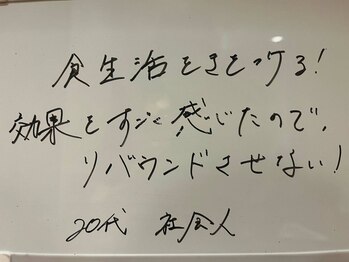 食生活をきをつける!
効果をすごく感じたので、
リバウンドさせない!
20代 社会人